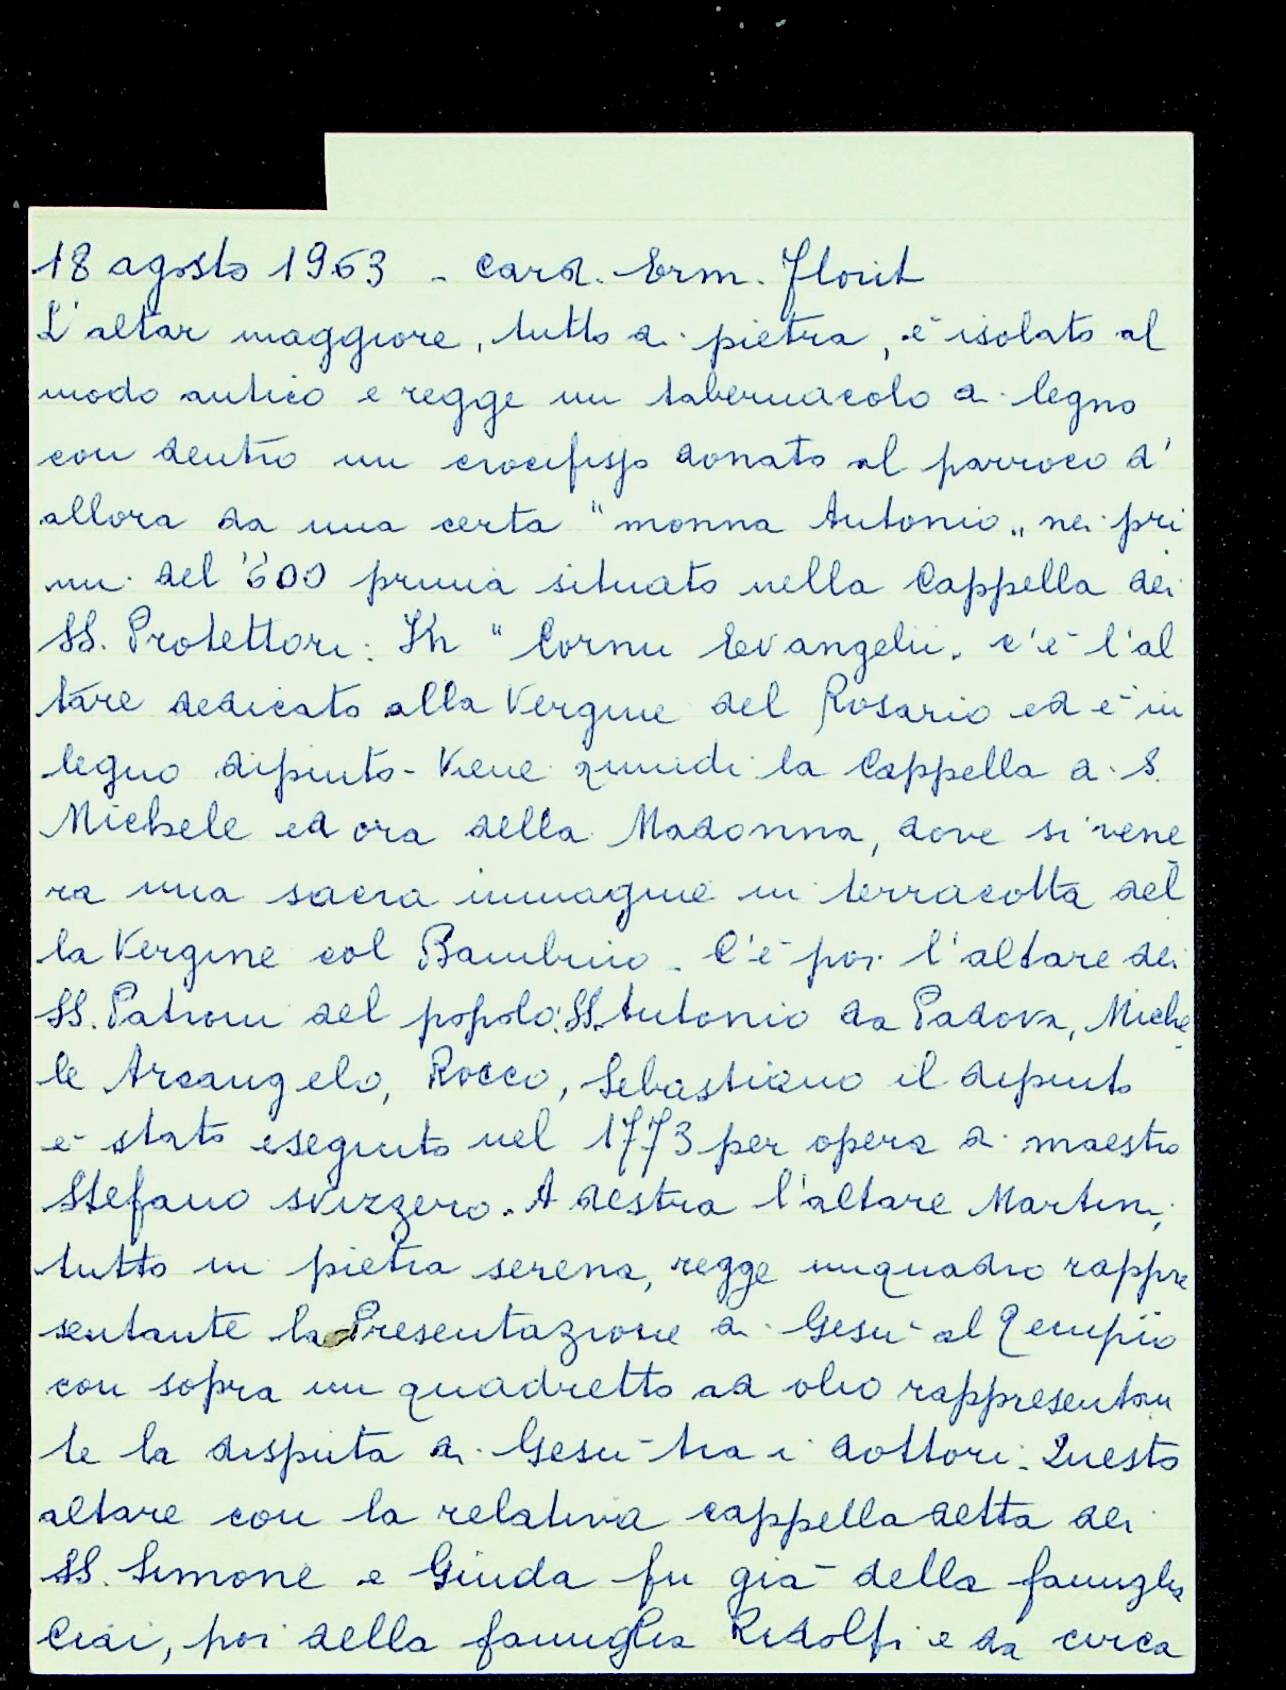 18 agosto 1963 - Card. Erm. Florit
L'altar maggiore, tutto di pietra, è isolato al
modo antico e regge un tabernacolo di legno
con dentro un crocifisso donato al parroco d'
allora da una certa "monna Antonio" nei pri
mi del '600 prima situato nella Cappella dei
SS. Protettori. In "Cornu Evangelii" c'è l'al
tare dedicato alla Vergine del Rosario ed è in
legno dipinto - Viene quindi la Cappella di S.
Michele ed ora della Madonna, dove si vene
ra una sacra immagine in terracotta del
la Vergine col Bambino. C'è poi l'altare dei
SS. Patroni del popolo: SS. Antonio da Padova, Miche
le Arcangelo, Rocco, Sebastiano il dipinto
è stato eseguito nel 1773 per opera di maestro
Stefano svizzero. A destra l'altare Martini,
tutto in pietra serena, regge un quadro rappre
sentante la Presentazione di Gesù al Tempio
con sopra un quadretto ad olio rappresentan
te la disputa di Gesù tra i dottori. Questo
altare con la relativa cappella detta dei
SS. Simone e Giuda fu già della famiglia
Ciai, poi della famiglia Ridolfi e da circa